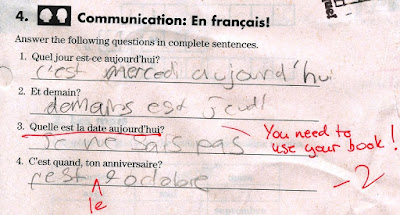 4. Communication: En français!
Answer the following questions in complete sentences.
1. Quel jour est-ce aujourd'hui?
c'est mercedi aujourd'hui
2. Et demain?
demains est jeudi
3. Quelle est la date aujourd'hui?
je ne sais pas
You need to
use your book!
4. C'est quand, ton anniversaire?
c'est 9 octobre
le
-2